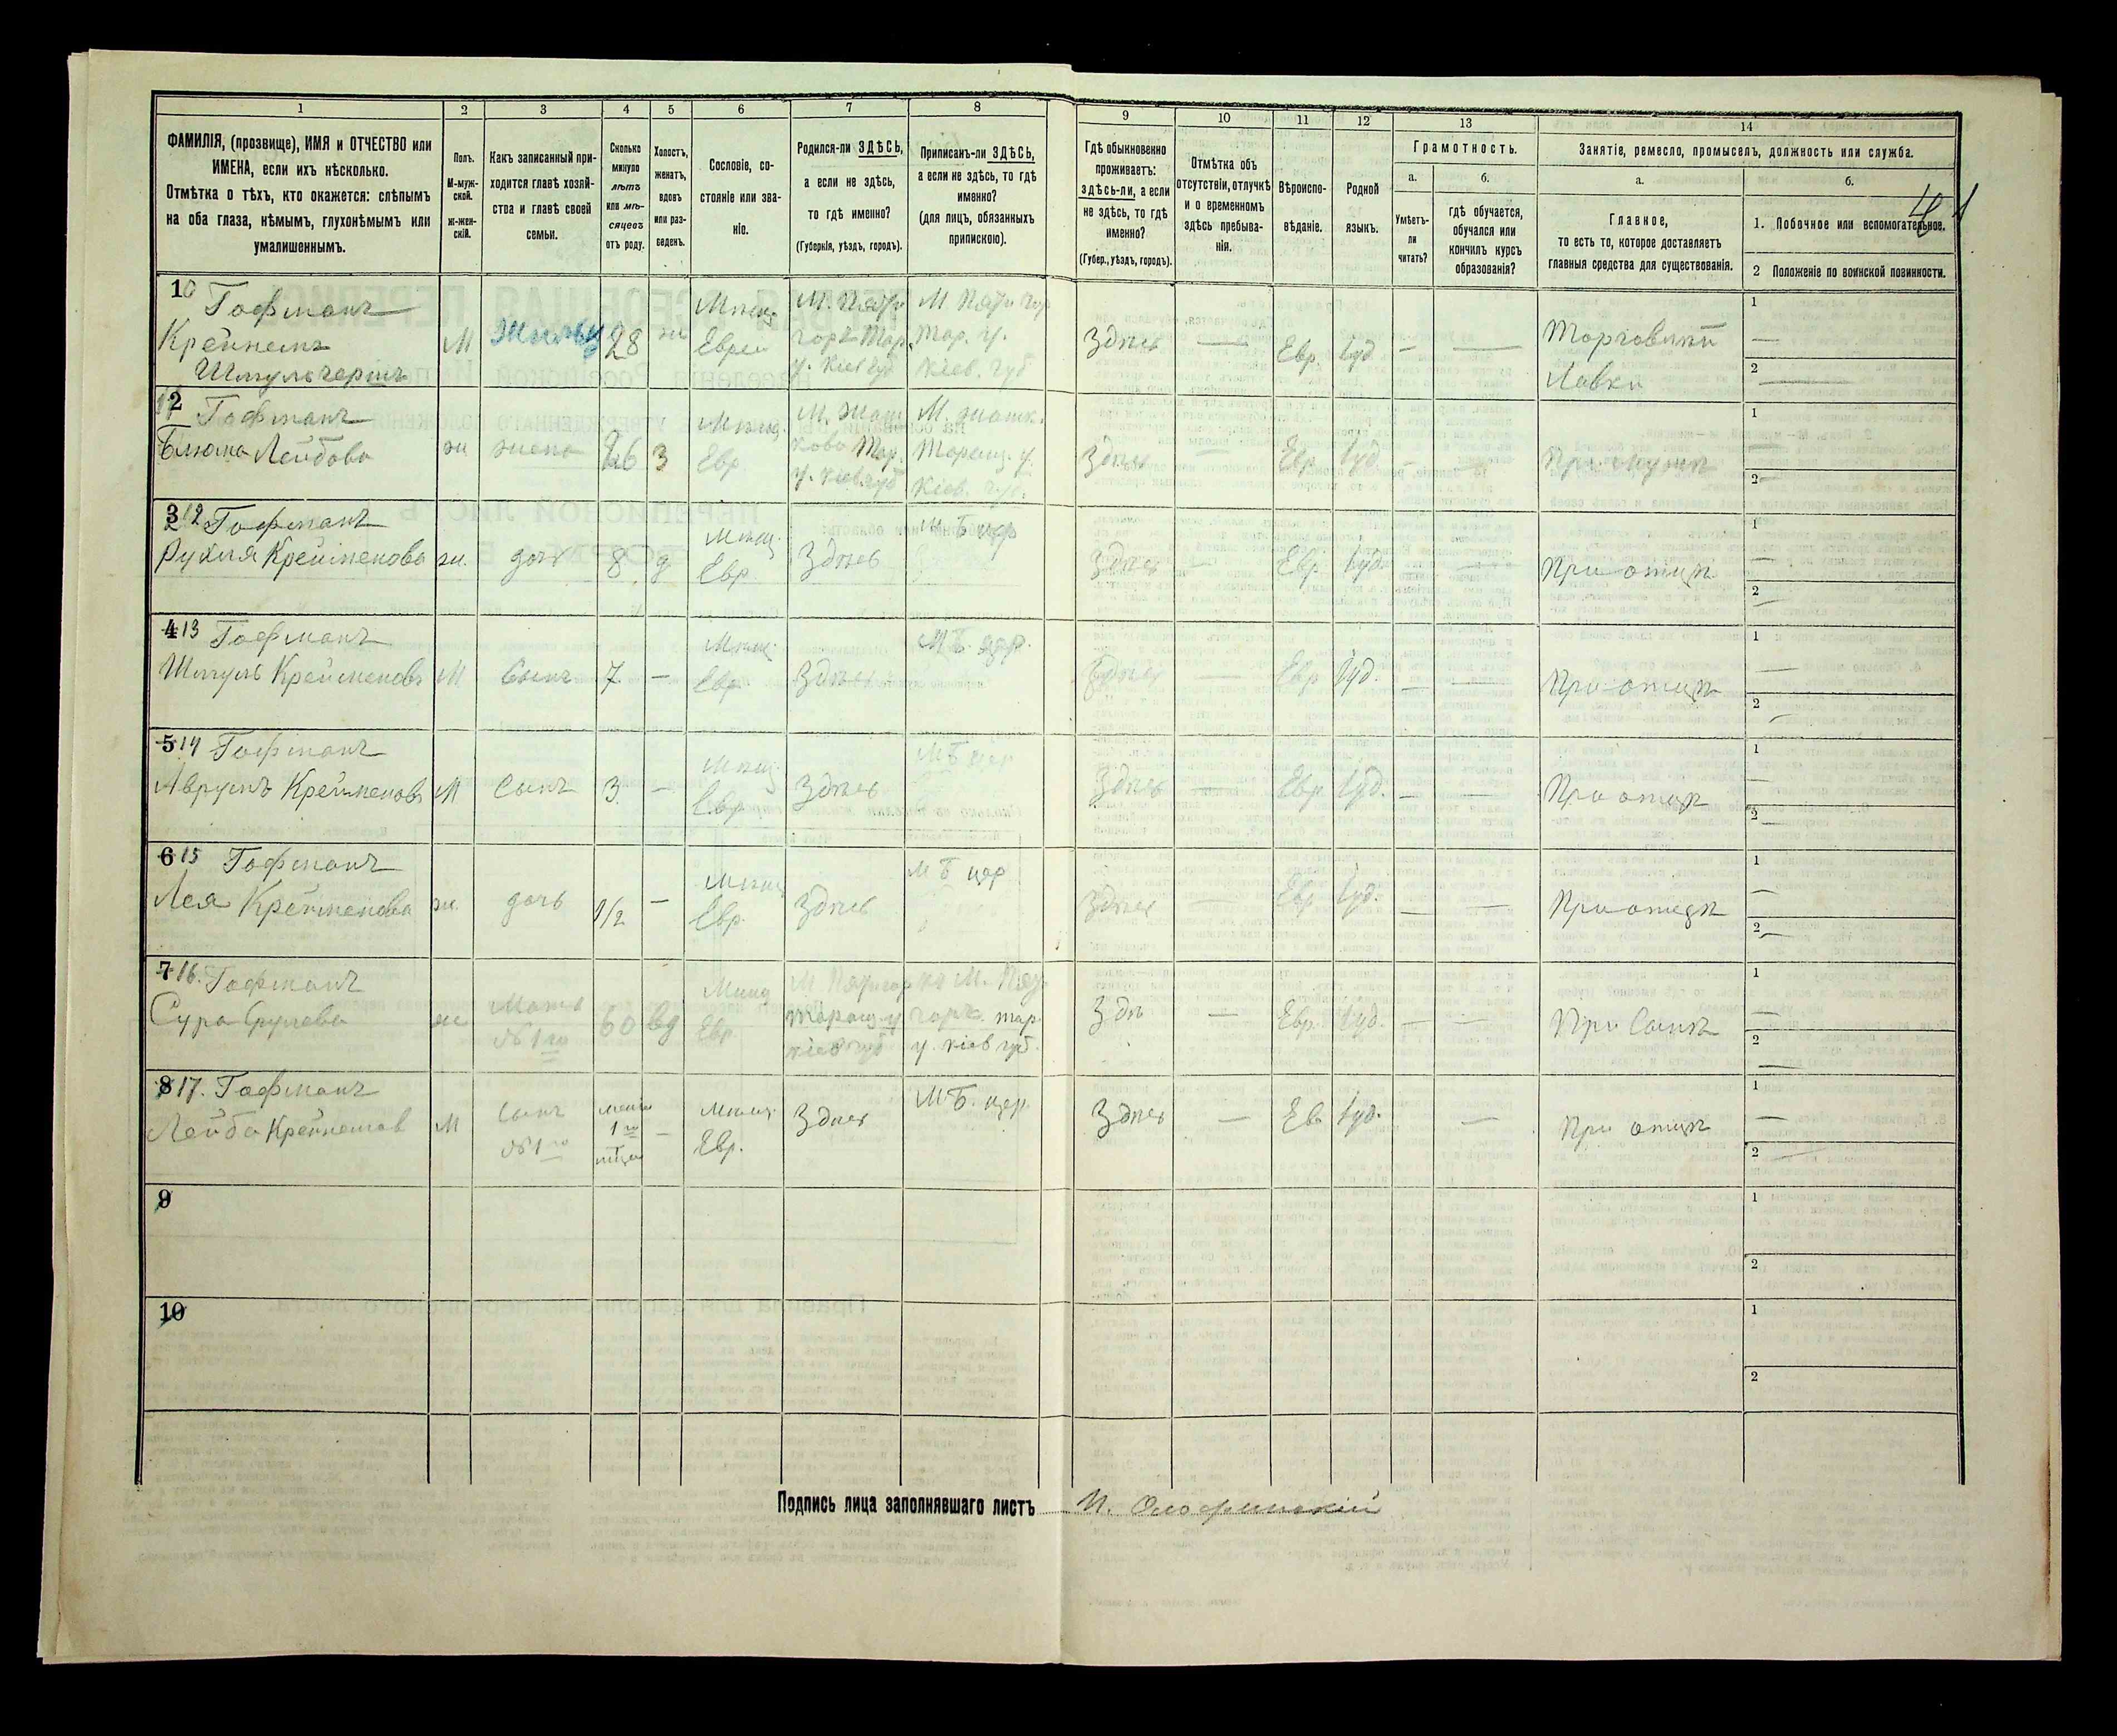 1
2
3
4
5
6
7
8
9
10
11
12
13
14
ФАМИЛІЯ, (прозвище), ИМЯ и ОТЧЕСТВО или
ИМЕНА, если ихъ нѣсколько.
Отмѣтка о тѣхъ, кто окажется: слѣпымъ
на оба глаза, нѣмымъ, глухонѣмымъ или
умалишеннымъ.
Полъ.
М-муж-
ской.
ж-жен-
скій.
Какъ записанный при-
ходится главѣ хозяй-
ства и главѣ своей
семьи.
Сколько
минуло
лѣтъ
или мѣ-
сяцевъ
отъ роду.
Холостъ,
женатъ,
вдовъ
или раз-
веденъ.
Сословіе, со-
стояніе или зва-
ніе.
Родился-ли ЗДѢСЬ,
а если не здѣсь,
то гдѣ именно?
(Губернія, уѣздъ, городъ).
Приписанъ-ли ЗДѢСЬ,
а если не здѣсь, то гдѣ
именно?
(для лицъ, обязанныхъ
припискою).
Гдѣ обыкновенно
проживаетъ:
здѣсь-ли, а если
не здѣсь, то гдѣ
именно?
(Губер., уѣздъ, городъ).
Отмѣтка объ
отсутствіи, отлучкѣ
и о временномъ
здѣсь пребыва-
ніи.
Вѣроиспо-
вѣданіе.
Родной
языкъ.
Грамотность.
а.
Умѣетъ-
ли
читать?
б.
гдѣ обучается,
обучался или
кончилъ курсъ
образованія?
Занятіе, ремесло, промыселъ, должность или служба.
а.
Главное,
то есть то, которое доставляетъ
главныя средства для существованія.
б.
1. Побочное или вспомогательное.
2 Положеніе по воинской повинности.
10 Гофманъ
М
28
Мѣщ.
Еврей
Здѣсь
—
Евр.
Іуд.
—
—
Торговлти
Лавки
1 —
2 —
2 Гофманъ
Блюма Лейбова
ж
жена
26
З
Мѣщ.
Евр
М. Жаш
кова Тар.
у. Кіев губ
М. Жашк.
Таращ. у.
Кіев. губ.
Здѣсь
—
Евр
Іуд
—
При мужѣ
1 —
2 —
3 12 Гофманъ
Рухля Крейменова
ж.
дочь
8
д
Мѣщ.
Евр.
Здѣсь
М. Б цер
Здѣсь
—
Евр
Іуд.
—
—
При отцѣ
1 —
2 —
4 13 Гофманъ
Шмуль Крейменовъ
М
Сынъ
7
—
Мѣщ.
Евр.
Здѣсь
М Б. цер.
Здѣсь
—
Евр
Іуд.
—
—
При отцѣ
1 —
2 —
5 14 Гофманъ
Аврумъ Крейменовъ
М
Сынъ
3
—
Мѣщ.
Евр
Здѣсь
М Б цер
Здѣсь
—
Евр
Іуд.
—
—
При отцѣ
1 —
2 —
6 15 Гофманъ
Лея Крейменова
ж.
дочь
1/2
—
Мѣщ
Евр.
Здѣсь
М Б цер
Здѣсь
—
Евр
Іуд.
—
—
При отцѣ
1 —
2 —
7 16. Гофманъ
Сура Срулева
ж
Мать
№ 1го
60
вд
Мѣщ
Евр
Таращ. у
Кіев губ
у. Кіев губ.
Здѣ
—
Евр.
Іуд.
—
—
При Сынѣ
1 —
2 —
8 17. Гофманъ
Лейба
М
Сынъ
№ 1го
менѣе
1го
—
Мѣщ.
Евр.
Здѣсь
М Б. цер.
Здѣсь
—
Евр
Іуд.
—
При отцѣ
1 —
2 —
9
1
2
10
1
2
Подпись лица заполнявшаго листъ